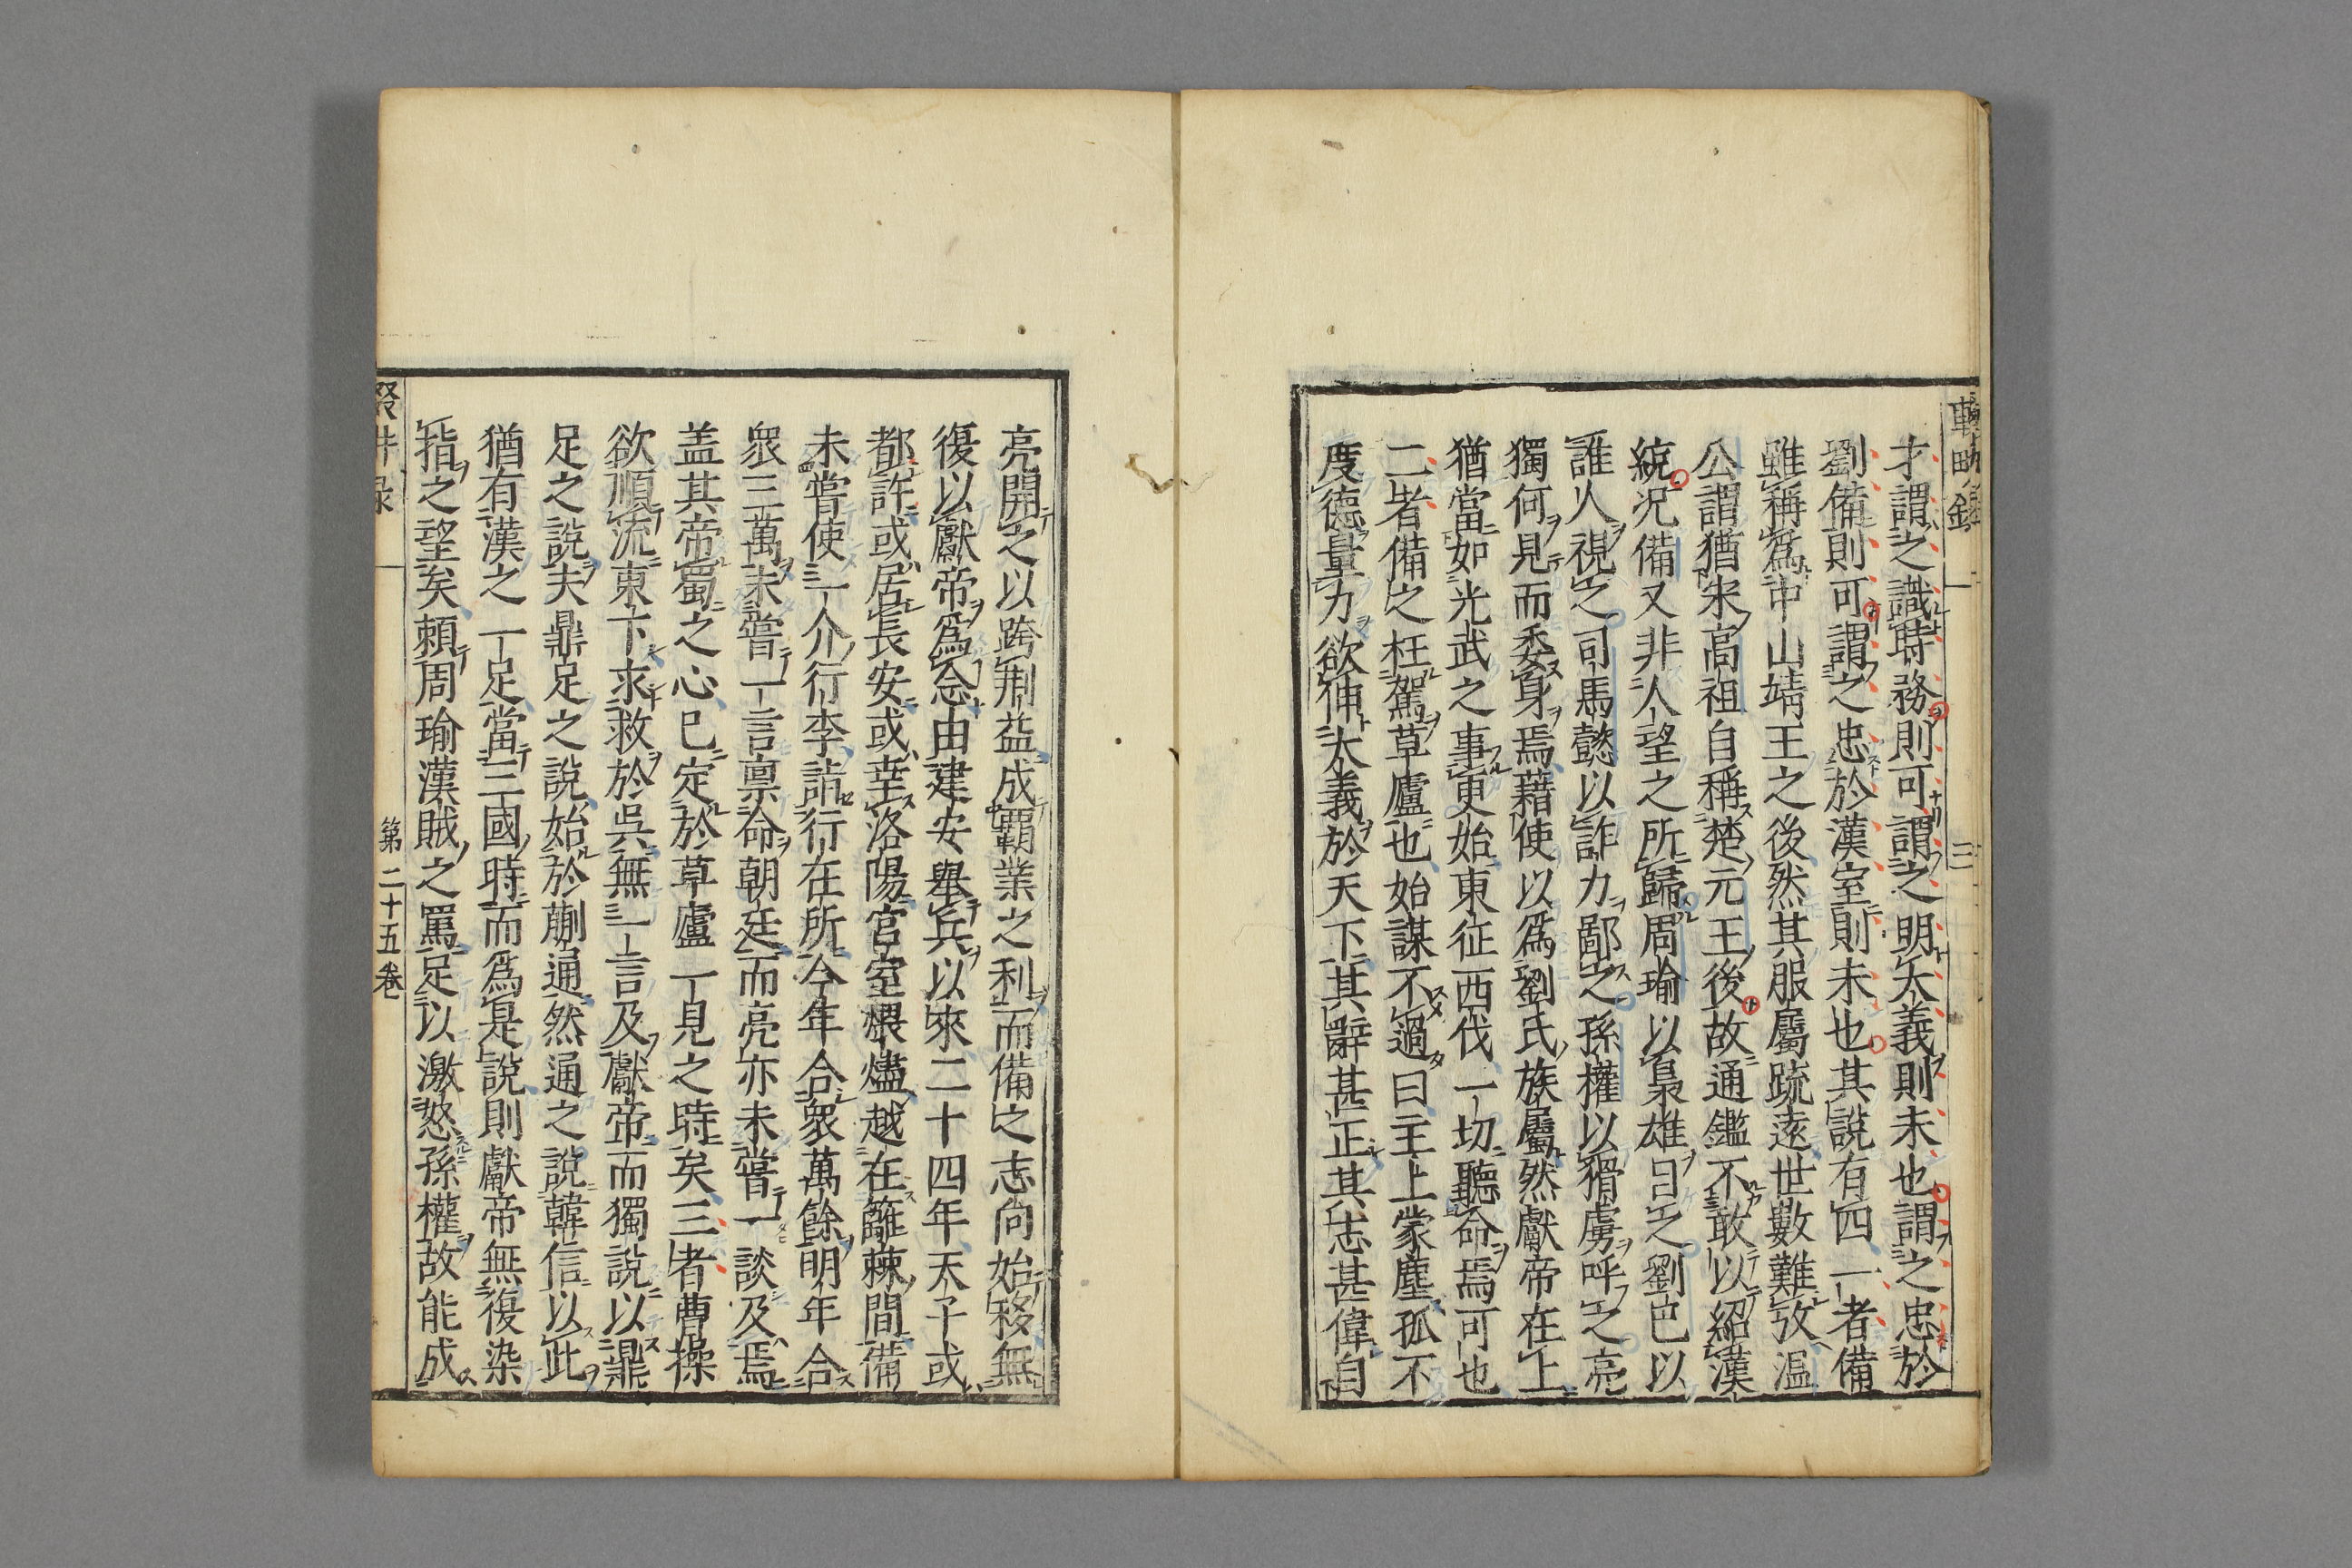 才謂之識時務則可謂之明大義則未也謂之忠於
劉備則可謂之忠於漢室則未也其說有四一者備
雖稱爲中山靖王之後然其服屬疏遠世數難攷溫
公謂猶宋高祖自稱楚元王後故通鑑不敢以紹漢
統况備又非人望之所歸周瑜以梟雄目之劉巴以
誰人視之司馬懿以詐力鄙之孫權以猾虜呼之亮
獨何見而委身焉藉使以爲劉氏族屬然獻帝在上
猶當如光武之事更始東征西伐一切聽命焉可也
二者備之枉駕草廬也始謀不過曰主上蒙塵孤不
度德量力欲伸大義於天下其辭甚正其志甚偉自
亮開之以跨荆益成覇業之利而備之志向始移無
復以獻帝爲念由建安舉兵以來二十四年天子或
都許或居長安或幸洛陽宮室煨燼越在籬棘間備
未嘗使一介行李詣行在所今年合衆萬餘明年合
衆三萬未嘗一言禀命朝廷而亮亦未嘗一談及焉
盖其帝蜀之心已定於草廬一見之時矣三者曹操
欲順流東下求救於吳無一言及獻帝而獨說以鼎
足之說夫鼎足之說始於蒯通然通之說韓信以此
猶有漢之一足當三國時而爲是說則獻帝無復染
指之望矣頼周瑜漢賊之罵足以激怒孫權故能成
第二十五卷